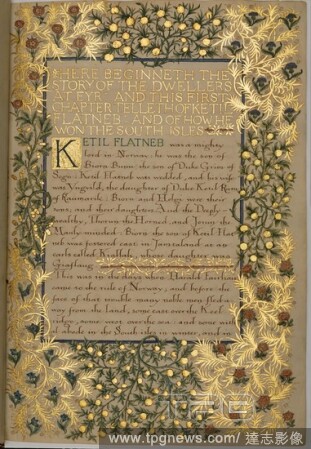 HERE BEGINNETH THE
STORY OF THE DWELLERS
AT EYR AND THIS FIRST
CHAPTER TELLETH OF KETIL
FLATNEB AND OF HOW HE
WON THE SOUTH ISLES
KETIL FLATNEB was a mighty
lord in Norway; he was the son of
Biorn Buna the son of Duke Grim of
Sogn: Ketil Flatneb was wedded, and his wife
was Yngvild, the daughter of Duke Ketil
of Raumarik: Biorn and Helgi were their
sons, and their daughters Aud the Deeply-
wealthy, Thorny the Horned, and Jorun the
Manly-minded: Biorn the son of Ketil Flat
neb was fostered east in Jamtaland as an
earls called whose daughter was
This was in the days when Harald Fairhair
came to the rule of Norway; and before the
face of that trouble many noble men fled a-
way from the land, some east over the Keel
ridge, some west over the sea: and some withal
abode in the South isles in winter, and in
TPG
www.tpgnews.com/達志影像